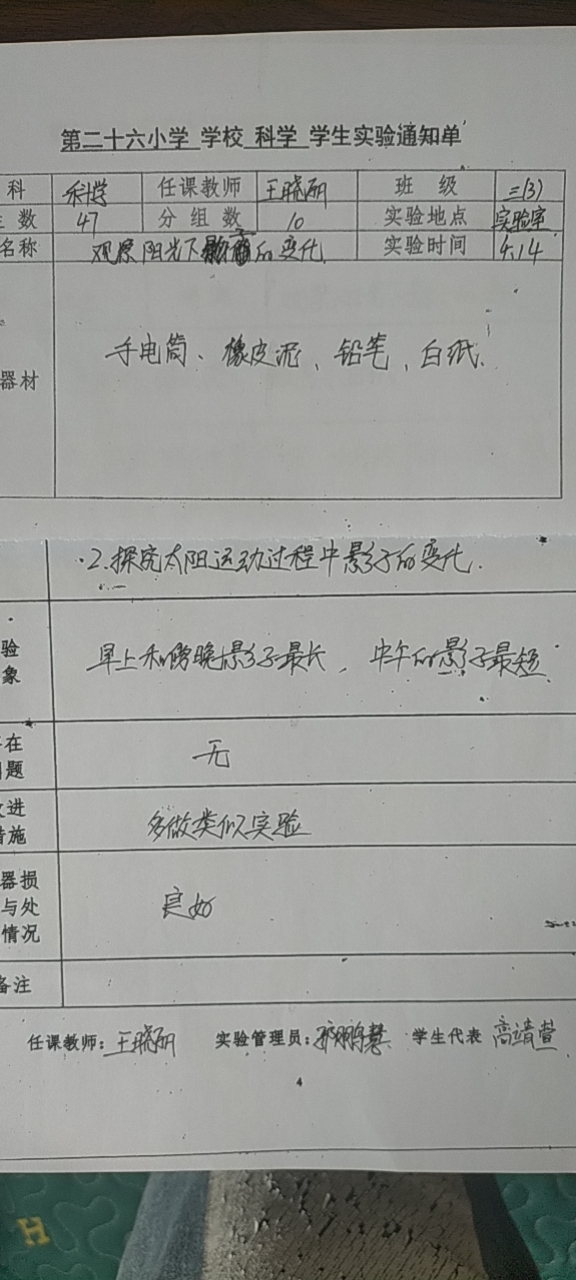 第二十六小学 学校 科学 学生实验通知单
科 科学 任课教师 王晓砚 班级 三(3)
数 47 分组数 10 实验地点 实验室
名称 观察阳光下的变化 实验时间 4.14
器材 手电筒、橡皮泥、铅笔、白纸.
2.探究太阳运动过程中影子的变化.
验
象
早上和傍晚影子最长，中午的影子最短.
在
题
无
进
施
多做类似实验
器损
与处
情况
良好
备注
任课教师：王晓砚 实验管理员： 学生代表 高靖萱
4
H